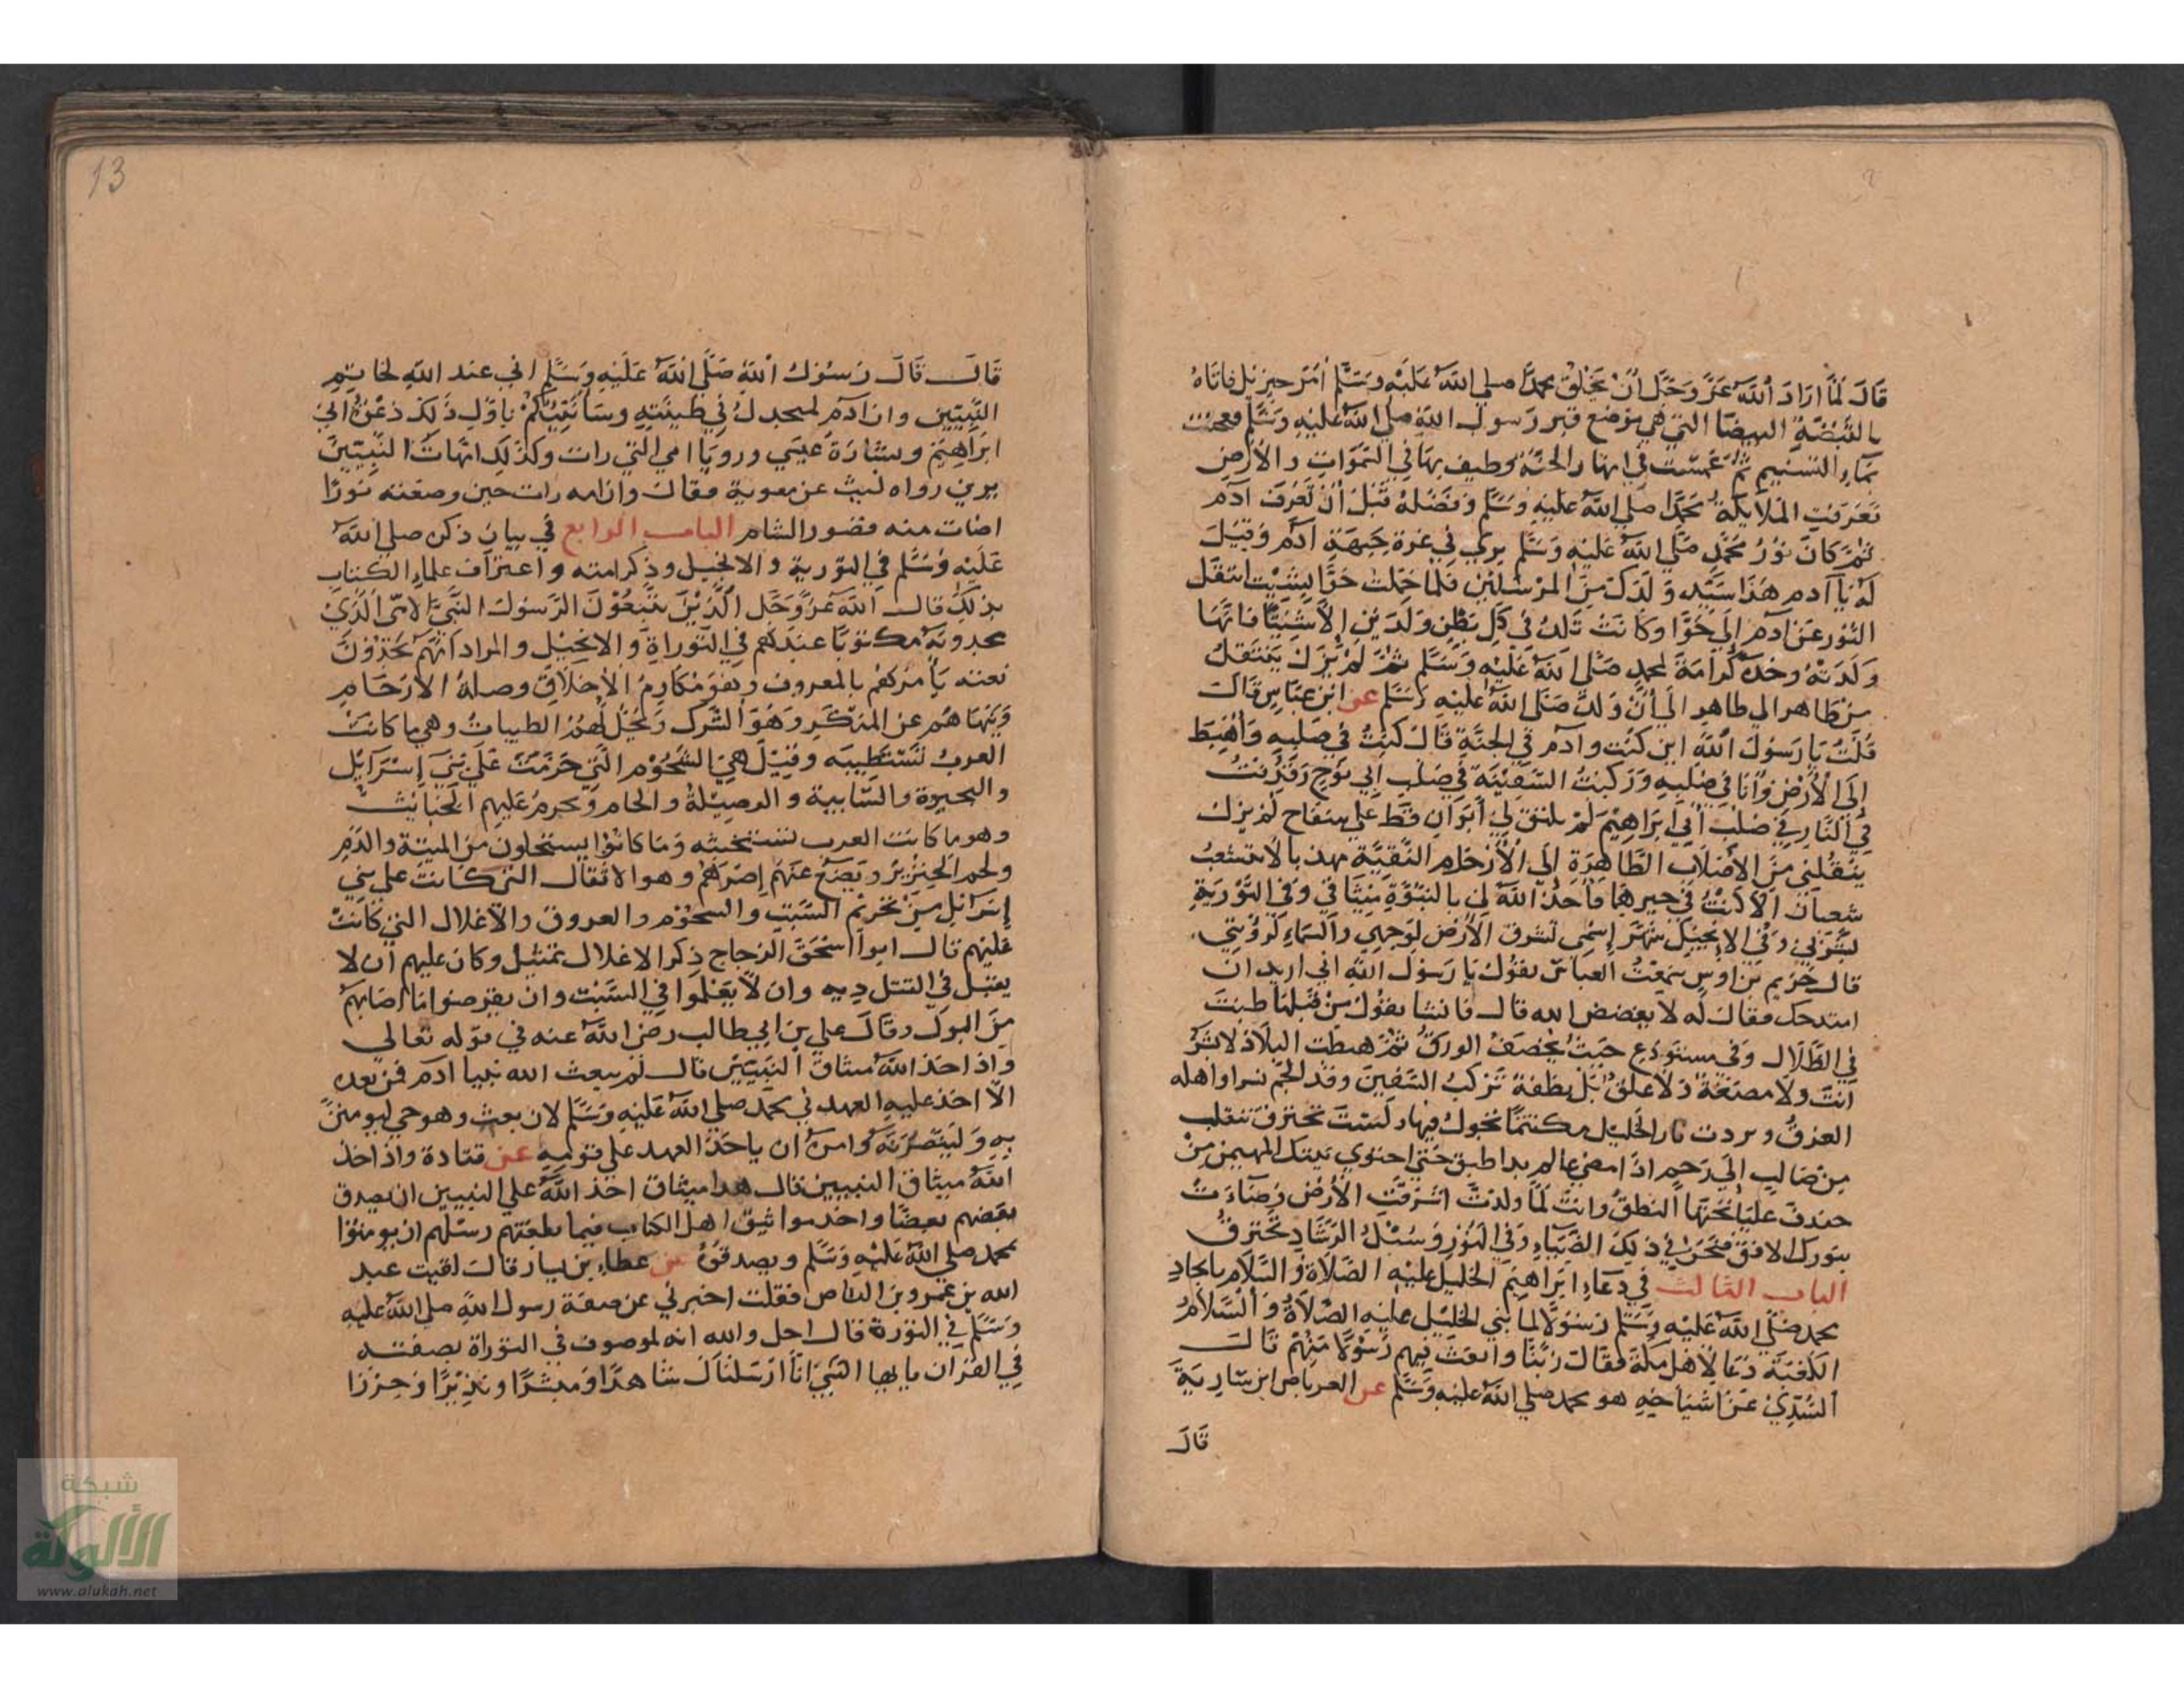 قَالَ لَمَّا ارَادَ اللَّه عَزَّ وَجَلَّ أَنْ يَخْلُقَ مُحَمَّدًا صلي اللَّه عَلَيْه وسَلَّم أَمَرَ جبرئيل فاتاهُ
بالقَبْضَةِ البيضا التي هي مَوْضع قبر رَسول اللَّه صلي اللَّه عليْه وسَلَّم فعجنت
بمَاءِ التسنيم ثمَّ غمست في انهار الجنَّة وطيف بهَا في السَّمَواتِ والأرضِ
فَعَرَفتِ المَلَايكة مُحَمَّدًا صلي اللَّه عَليْه وَسَلَّم وفَضْلهُ قَبْل أنْ تَعْرِفَ آدَم
ثمَّ كَانَ نورُ مُحَمَّدٍ صَلَّي اللَّه عَليْه وَسَلَّم يري في غُرةِ جَبهَةِ آدَم وَقيْلَ
لَهُ يَا آدم هَذَا سَيّد وَلَدِكَ مِنَ المرْسَليْن فلمَّا حَمَلت حَوَّا بِشيْث انتقَل
النُّور عَنْ آدَم إلَي حَوَّا وكَانَتْ تَلدُ في كلِ بَطْنٍ وَلَدَيْنِ إلَّا شَيْثًا فَانَّهَا
وَلَدَتْهُ وحْدَه كَرَامَةً لمحمدٍ صَلَّى اللَّه عَلَيْه وَسَلَّم ثمَّ لَمْ يَزَلْ يَنْتَقلُ
مِنْ طَاهر الي طاهِرٍ الَي أنْ وَلدَ صَلَّي اللَّه عليْه وسَلَّم عن ابن عبَّاسٍ قَالَ
قُلْتُ يَا رَسُولَ اللَّهِ اين كنْت وآدَم في الجنَّةِ قَالَ كُنْتُ في صُلْبِهِ وَأُهْبِطَ
إلَى الأَرْضِ وَأنَا في صُلْبِهِ وَرَكبْتُ السَّفِيْنَةَ في صُلْبِ ابي نوحٍ وَقُذفتُ
في النَّارِ في صُلْبِ أبي ابرَاهِيْمَ لَمْ يلتق لي أبَوَانِ قطّ علي سفاحٍ لَمْ يزل
ينْقلني مِنَ الأصْلَابِ الطَّاهِرَةِ إلَى الأَرْحَامِ النَّقِيَّةِ مهذبا لا تتشعبُ
شعبانِ الَّا كُنْتُ في خيرهما فأخذَ اللَّهُ لي بالنبُوَّةِ مِيثَاقي وَفي التَّوْريةِ
بشرَ بي وَفي الإنجيل شهَّرَ إسْمي تشرق الأَرْض لوجهي وَالسَّمَاء لرؤيتي
قال خريم بْن اوسٍ سَمعْتُ العباسَ يقوْل يَا رَسُولَ اللَّه اني اريد ان
امتدحك فقال لَه لا يفضض الله فاك فانشا يقوْل مِنْ قبلها طبْتَ
في الظّلَالِ وَفي مستودَعٍ حَيْثُ يخصفُ الورقُ ثمَّ هبطْت البلَادَ لا بشَرٌ
انتَ ولَا مضغَةٌ ولَا علقُ بَلْ نطفةٌ تَركبُ السَّفينَ وقد الجمَ نسرا واهله
الغرقُ وردت نار الخليْل مكتتمًا تجول فيهَا ولَسْتَ تحترقُ تنقلب
مِنْ صَالبٍ إلَي رَحمٍ اذَا مضي عالم بدا طبق حَتَّى احتوي بيتك المهيمن مِنْ
خندفَ عليَا تحْتَهَا النطقُ وانتَ لَمَّا ولدْتَ اشْرَقَتِ الأرْض وَضَاءَتْ
بنورك الافق فَنحنُ في ذلِكَ الضّيَاءِ وَفي النُّورِ وَسُبْل الرَّشَادِ نَخْترقُ
الباب الثالث في دعَاءِ ابرَاهِيْم الخليل عليْه الصَّلَاة وَالسَّلَام بايجادِ
محمد صَلَّي اللَّه عَليْه وَسَلَّم رَسُوْلًا لما بني الخليْل عليْه الصَّلَاةُ وَالسَّلَامُ
الكَعْبَة دَعَا لأهْل مَكَّة فقالَ رَبَّنَا وَابعَثْ فيهِم رَسُوْلًا مِنْهُمْ قَالَ
السُّدِّيّ عَنْ أشيَاخِهِ هو محمد صلي اللَّه عليْه وَسَلَّم عن العرباض ابن سَارِيَةَ
قَالَ
13
قَالَ قَالَ رَسُوْلُ اللَّهِ صَلَّى اللَّه عَلَيْه وَسَلَّم اني عند اللَّهِ لخاتِمِ
النَّبِيّيْن وان آدَم لمنجدلٌ في طينَتِهِ وسَأُنَبِّئُكُمْ باوَّلِ ذَلِكَ دَعْوَةُ ابي
ابرَاهِيْمَ وبشَارَةُ عيسَي ورويَا امي التي رات وكذَلكِ امّهَاتُ النَّبِيّيْن
يرين رواه ليث عن معوية فقال وان امه رات حين وضعته نورًا
اضات منه قصور الشام الباب الرابع في بيان ذكره صلي اللَّه
عَلَيْه وَسَلَّم في التورية والانجيل وذِكْرِ امته واعتراف علماء الكتاب
بذلكَ قال اللَّه عَزَّ وَجَل الَّذِيْنَ يَتَّبِعُوْنَ الرَّسُولَ النَّبِيَّ الأُمّي الَّذي
يجدونَه مكتوبًا عندَهُم في التَّوراةِ والانجيْل والمراد انَّهم يَجدُوْنَ
نعته يَأمُرُهُم بالمعروف وهوَ مَكَارِمُ الأخلَاقِ وصلَةُ الأرْحَامِ
وَيَنْهَاهُم عن المنكَرِ وَهُوَ الشّرك ويُحِلُّ لَهُمُ الطيبات وهي ما كانتْ
العربُ تَسْتَطيبه وَقيْل هيَ الشُّحُوْم الَّتي حَرُمَتْ عَلَي بَنِي إسْرَآئيْل
والبحيرة والسَّايبة والوصِيْلةُ والحام ويحرمُ عَلَيهِم الخَبَائِثَ
وهو ما كانت العرب تستخبثه وَمَا كانُوا يستحلون منَ الميتة والدَّمِ
ولحم الخِنْزِيْرِ ويَضَعُ عَنْهُم إصْرَهُمْ وهو الاثقال التي كَانَتْ علي بَنِي
إسْرَائيل مِنْ تحريْم السَّبْتِ والشحُوم والعروق والأغلال التي كانتْ
عليْهم قال ابوا اسْحَقَ الزجاج ذِكر الاغلال تمثيل وكان عليهم أن لا
يقبَل في القتل دِيه وان لَا يعْمَلوا في السَّبْت وان يقرضوا مَا اصَابهُم
مِنَ البولِ وقَالَ علي بن ابي طالب رضي اللَّه عنه في قوله تعَالي
واذ اخَذَ اللَّه ميثاقَ النَّبيّيْنَ قال لَمْ يبعث الله نبيا آدم فمن بعده
الَّا اخذ عليه العهد في محمدٍ صلي اللَّه عَليْه وَسَلَّم لان بعث وهو حي ليومننَّ
بِهِ وَلَيَنْصُرَنَّه وامرهُ ان ياخذَ العهد علي قومِهِ عن قتادة واذ اخذ
اللَّه ميثاق النبيين قال هذا ميثاق اخذ اللَّه علي النبيين ان يصدق
بعْضهم بعضًا واخذ مواثيق اهل الكتاب فيما بلغتهم رسلهم ان يومنوا
بمحمد صلي اللَّه عَليْه وَسَلَّم ويصدقوْهُ عن عطاءِ بن يسار قال لقيت عبد
الله بن عَمرو بن العاص فقلت اخبرني عن صفة رسول اللَّهِ صلي اللَّه عليه
وَسَلَّم في التوْرة قال اجل والله انه لموصوف في التوْراة بصفته
في القرآن يا ايها النَّبِيّ انَّا ارْسَلناكَ شَاهدًا ومبشرًا ونذِيْرًا وحِرْزا
شبكة
الألوكة
www.alukah.net